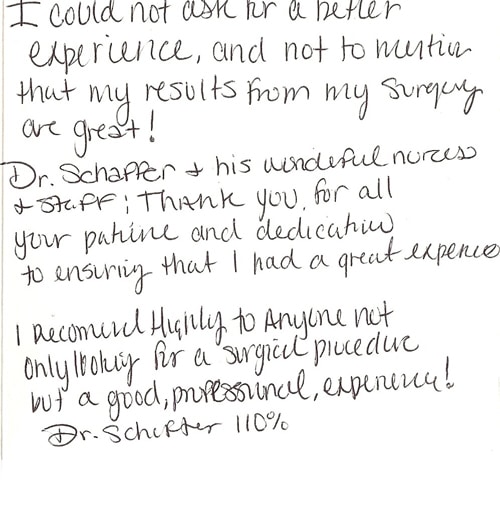 I could not ask for a better
experience, and not to mention
that my results from my surgery
are great!
Dr. Schaffer + his wonderful nurses
+ staff; Thank you, for all
your patience and dedication
to ensuring that I had a great experience
I Recomend Highly to Anyone not
Only looking for a surgical procedure
but a good, professional, experience!
Dr. Schaffer 110%